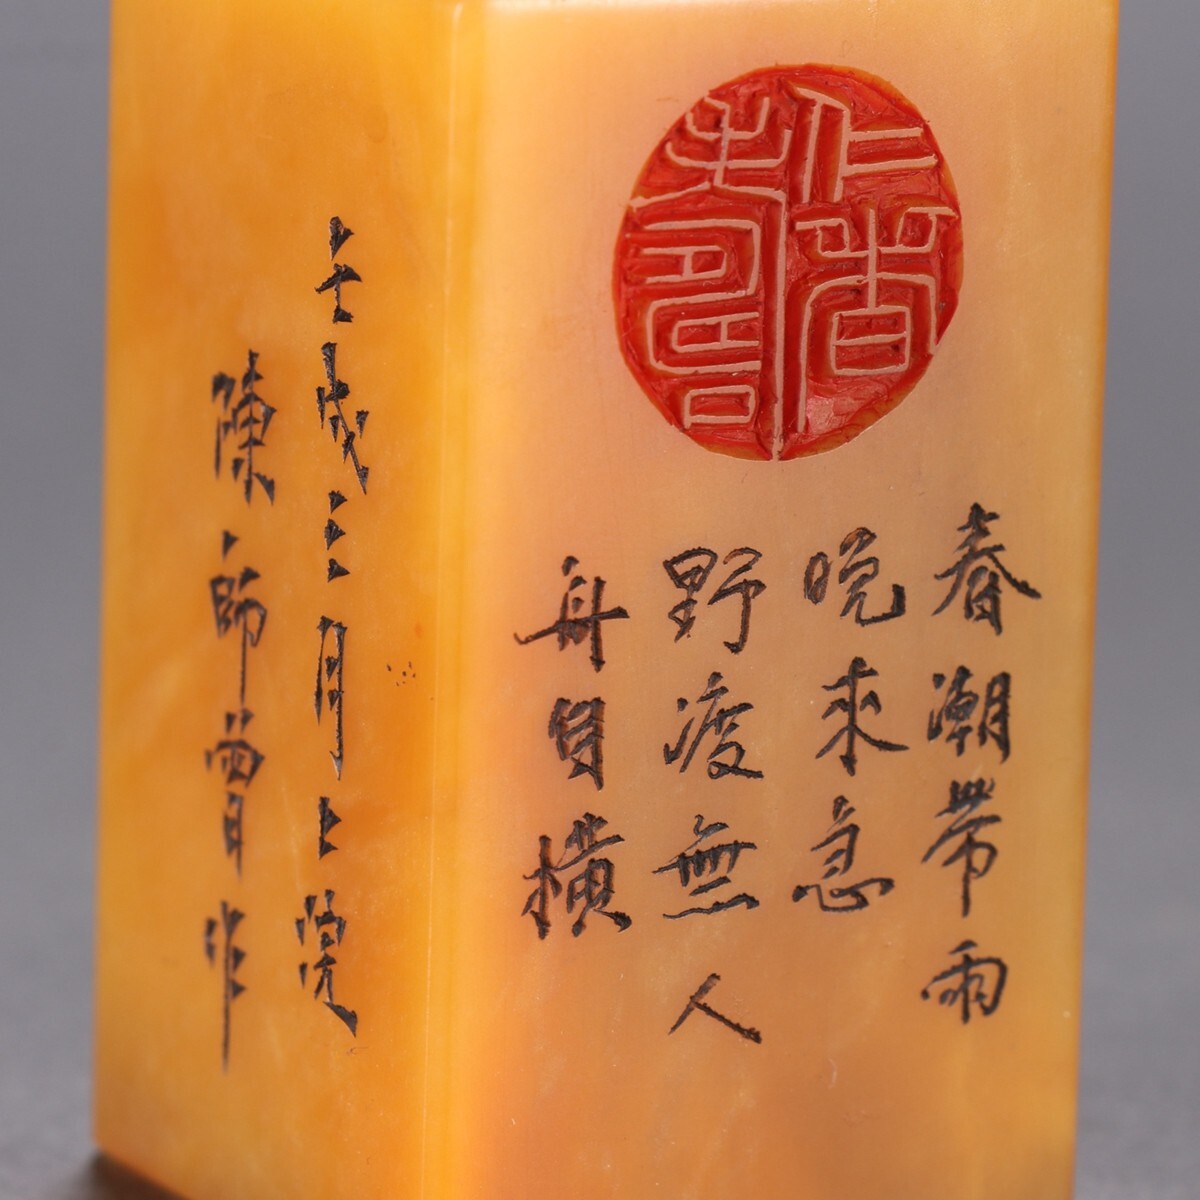 春潮帶雨
晚來急
野渡無人
舟自橫
壬戌三月上浣
陳師曾作